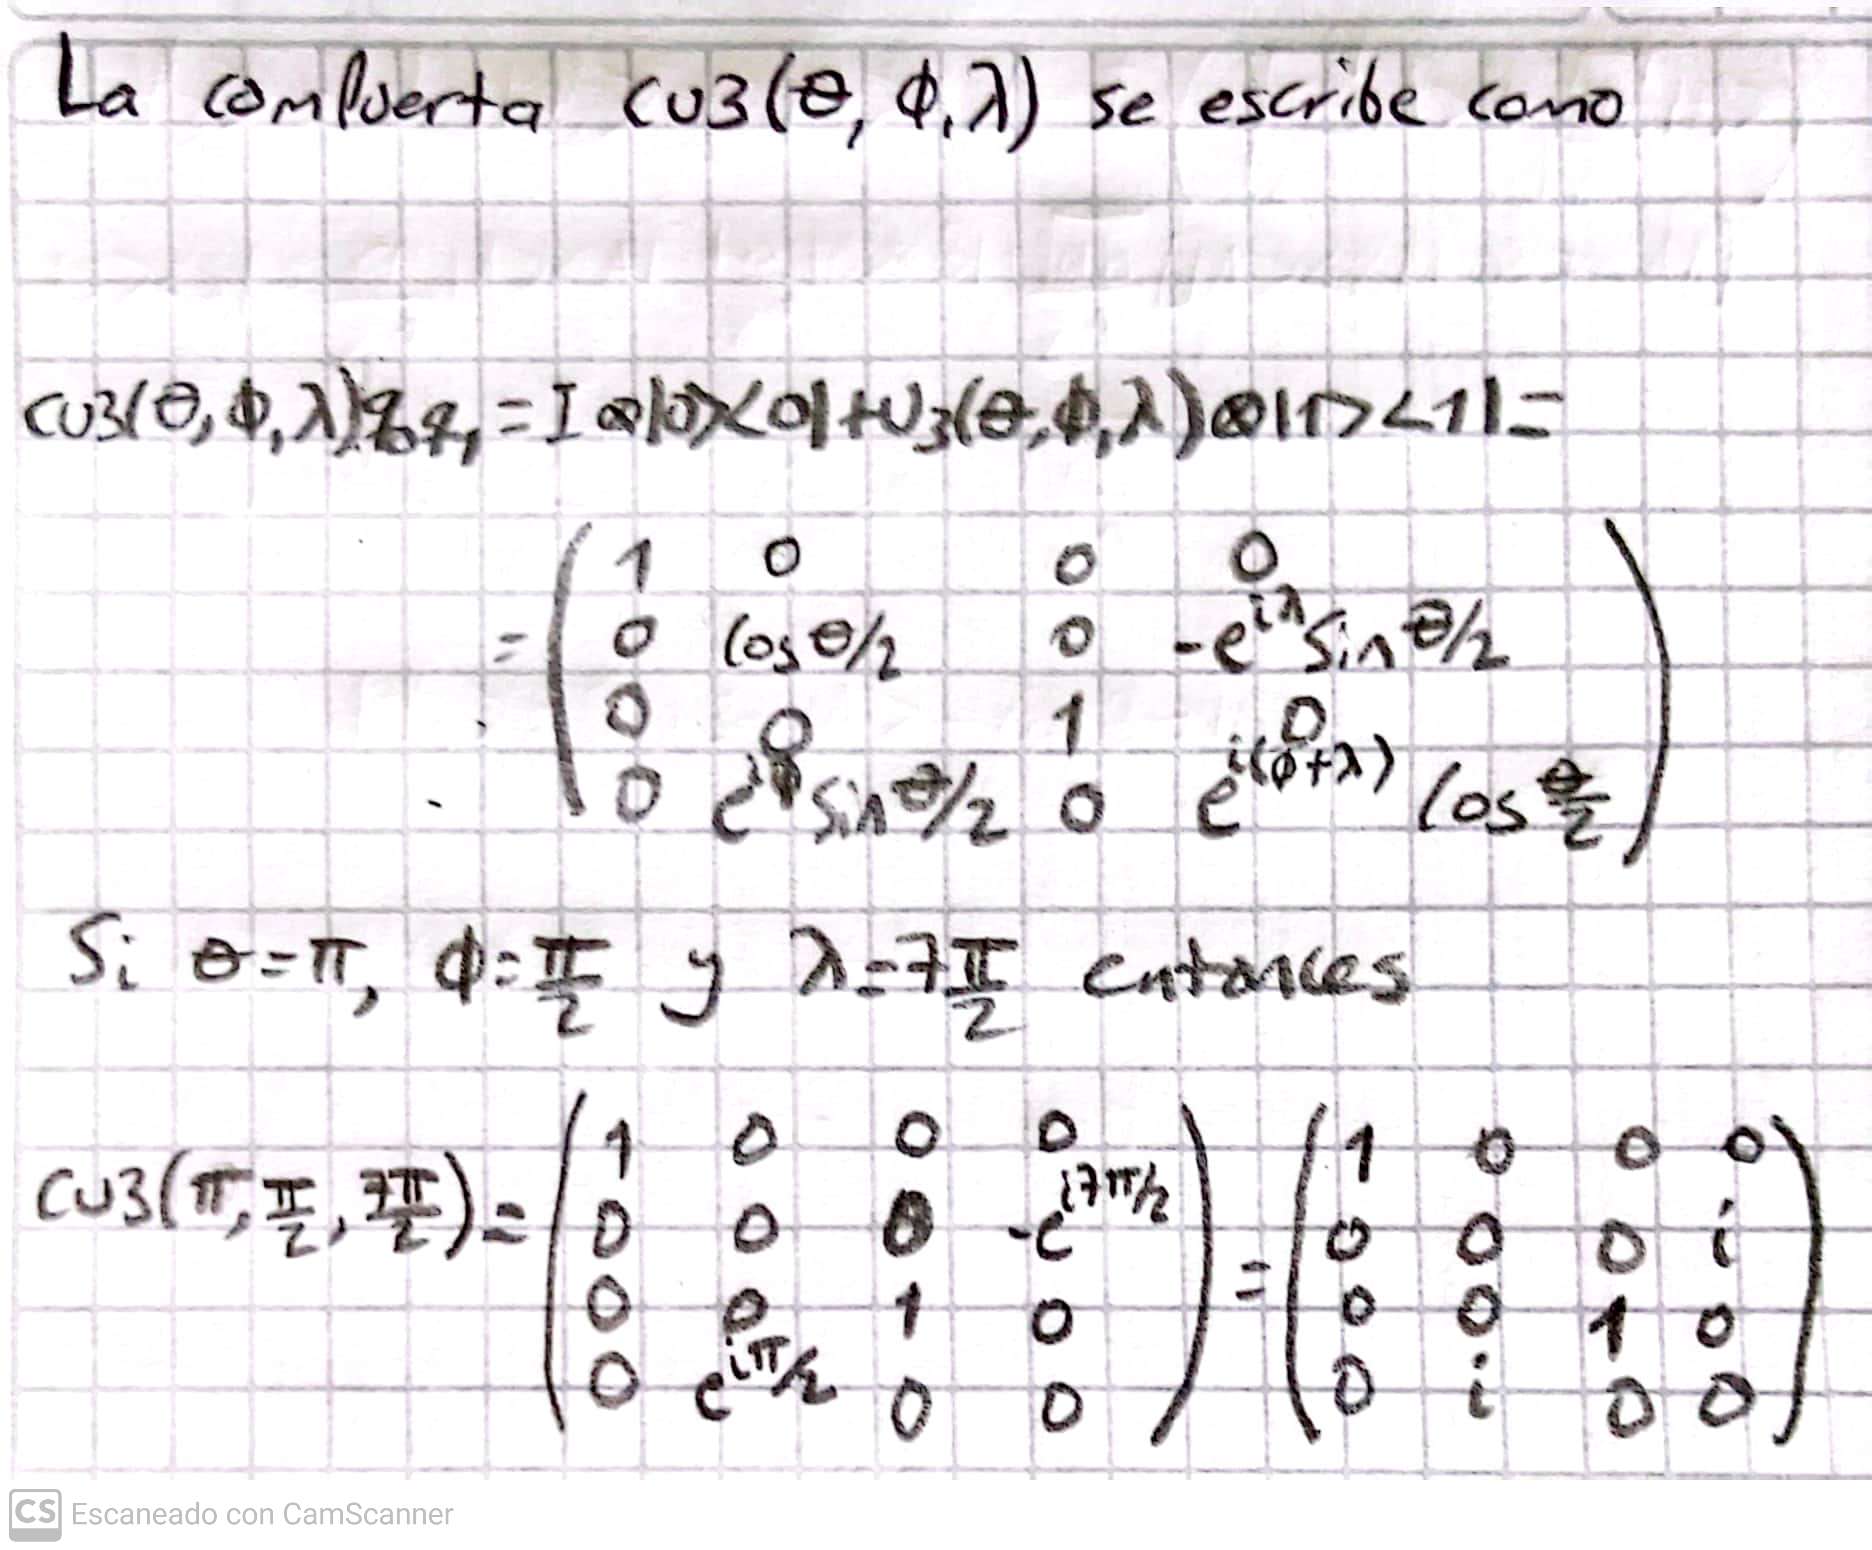 La compuerta CU3(θ, ϕ, λ) se escribe como
CU3(θ, ϕ, λ)q₀q₁ = I⊗|0><0|+U₃(θ,ϕ,λ)⊗|1><1|=
= ( 1 0 0 0
0 cos θ/2 0 -e^{iλ} sin θ/2
0 0 1 0
0 e^{iϕ} sin θ/2 0 e^{i(ϕ+λ)} cos θ/2 )
Si θ=π, ϕ=π/2 y λ=7π/2 entonces
CU3(π, π/2, 7π/2) = ( 1 0 0 0 ; 0 0 0 -e^{i7π/2} ; 0 0 1 0 ; 0 e^{iπ/2} 0 0 ) = ( 1 0 0 0 ; 0 0 0 i ; 0 0 1 0 ; 0 i 0 0 )
CS Escaneado con CamScanner